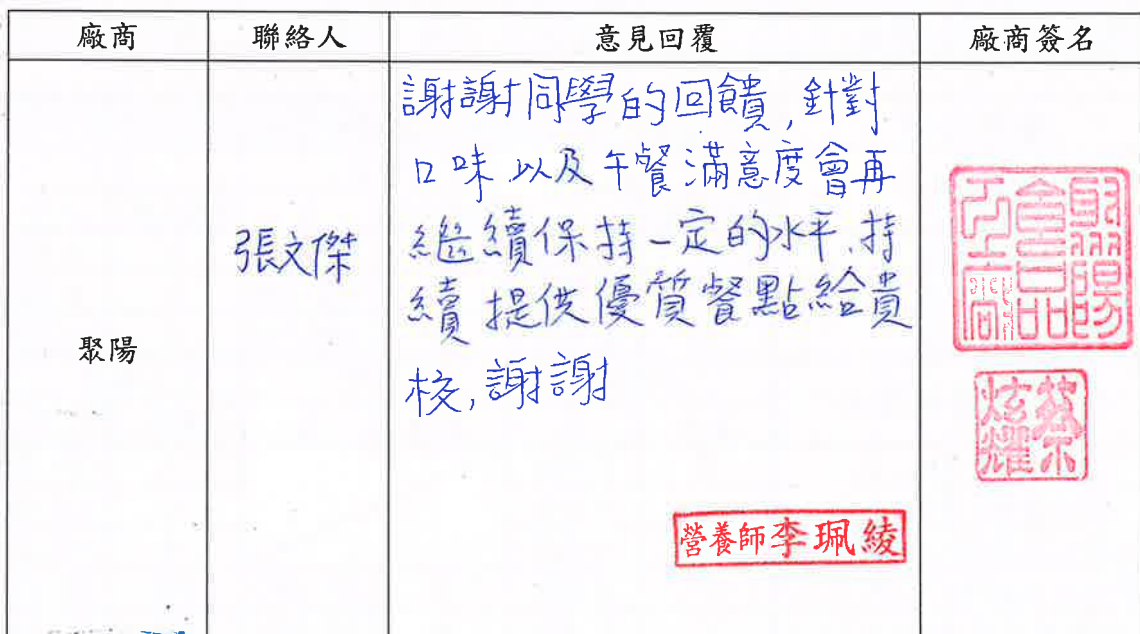 廠商 聯絡人 意見回覆 廠商簽名
聚陽
張文傑
謝謝同學的回饋,針對
口味以及午餐滿意度會再
繼續保持一定的水平,持
續提供優質餐點給貴
校,謝謝
營養師李珮綾
聚陽
食品
工廠
蔡
炫耀